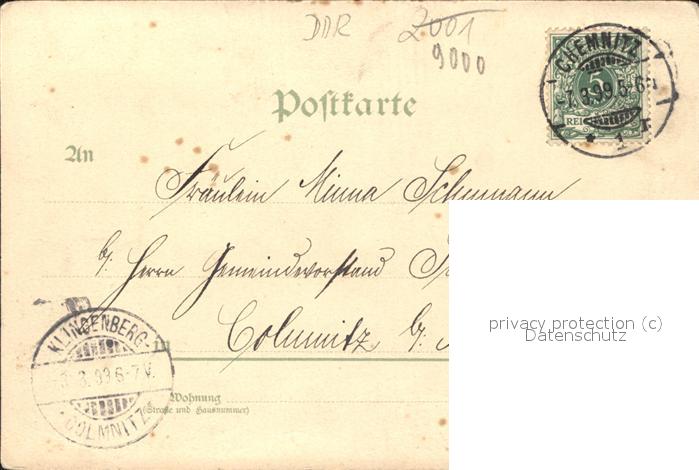 DDR 2001
9000
CHEMNITZ
7.3.99.5-6N
* 1
5
REI
Postkarte
An
Fräulein Minna Schumann
b/. Herrn Gemeindevorstand
in Colmnitz b/.
KLINGENBERG-
3.99 6-7V.
COLMNITZ
Wohnung
(Straße und Hausnummer)
privacy protection (c)
Datenschutz